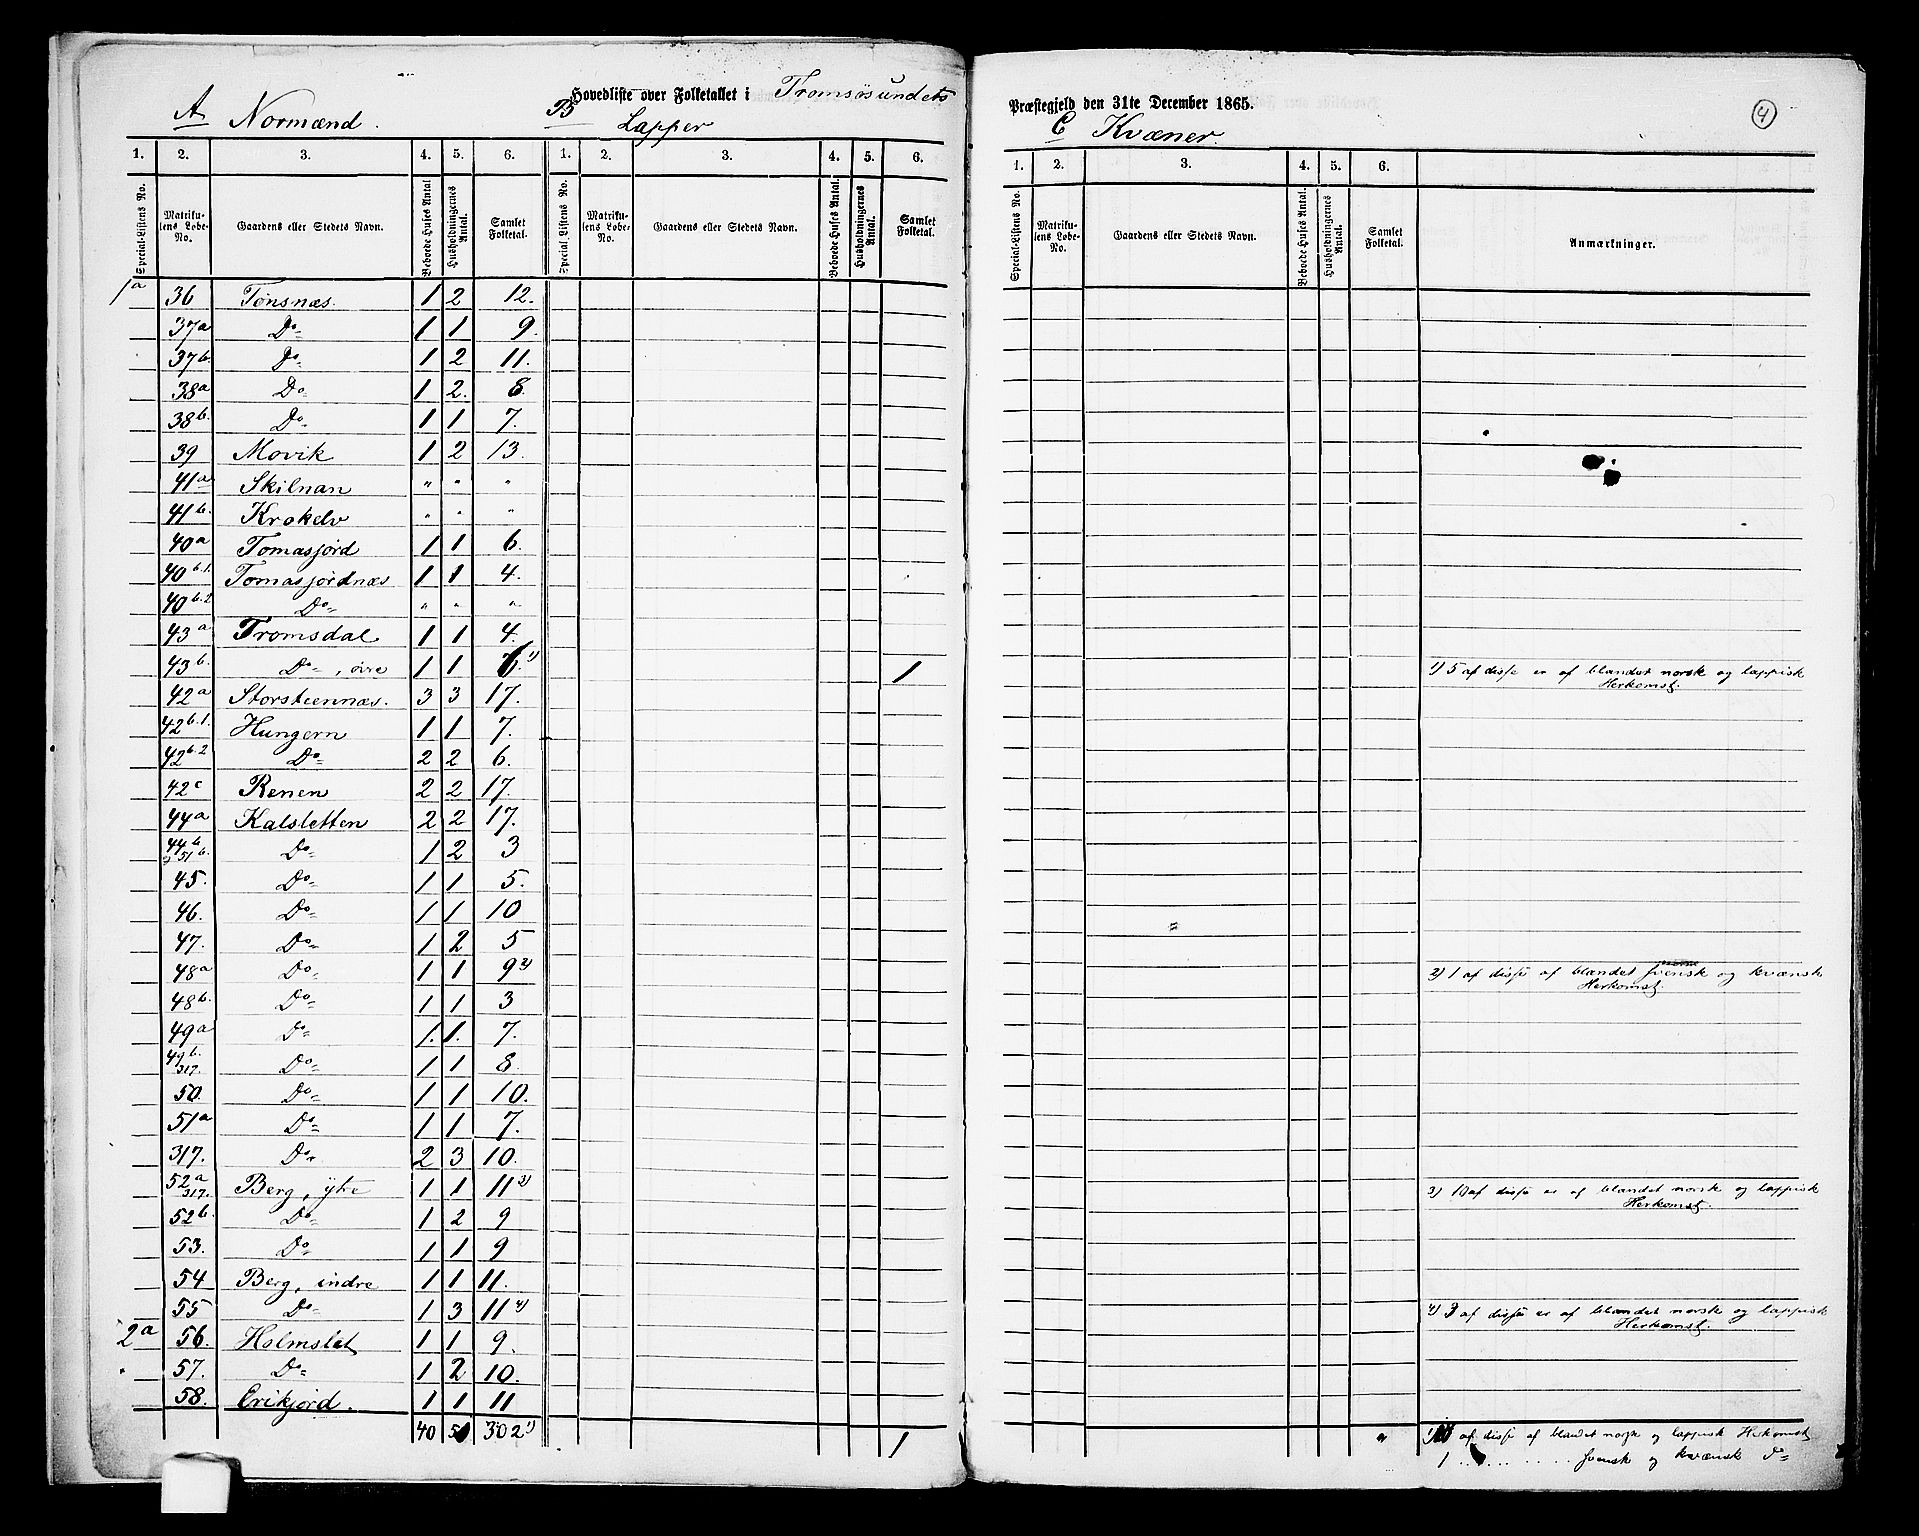 Hovedliste over Folketallet i Tromsösundets Præstegjeld den 31te December 1865.
4
A Normænd. B Lapper C Kvæner.
1. 2. 3. 4. 5. 6. 1. 2. 3. 4. 5. 6. 1. 2. 3. 4. 5. 6.
Special-Listens No. Matrikulens Løbe-No. Gaardens eller Stedets Navn. Beboede Huses Antal Husholdningernes Antal. Samlet Folketal. Special-Listens No. Matrikulens Løbe-No. Gaardens eller Stedets Navn. Beboede Huses Antal. Husholdningernes Antal. Samlet Folketal. Special-Listens No. Matrikulens Løbe-No. Gaardens eller Stedets Navn. Beboede Huses Antal. Husholdningernes Antal. Samlet Folketal. Anmærkninger.
1a 36 Tønsnæs. 1 2 12.
37a Do 1 1 9.
37b. Do 1 2 11.
38a Do 1 2. 8.
38b. Do 1 1 7.
39 Movik 1 2 13.
41a Skilnan " " "
41b. Krokelv " " "
40a Tomasjord 1 1 6.
40b.1. Tomasjordnæs 1 1 4.
40b.2 Do " " "
43a Tromsdal 1 1 4.
43b. Do, øvre 1 1 1) 1 1) 5 af disse er af blandet norsk og lappisk
Herkomst.
42a Storsteennæs. 3 3 17.
42b.1. Hungern 1 1 7.
42b.2 Do 2 2 6.
42c Renen 2 2 17.
44a Kalsletten 2 2 17.
44b 51b. Do 1 2 3
45. Do 1 1 5.
46. Do 1 1 10
47. Do 1 2 5
48a Do 1 1 9 2) 2) 1 af disse af blandet svensk og kvænsk
Herkomst.
48b. Do 1 1 3
49a Do 1. 1. 7.
49b. 317. Do 1 1 8.
50. Do 1 1 10.
51a Do 1 1 7.
317. Do 2 3 10.
52a 317. Berg, ytre 1 1 11 3) 3) 10 af disse er af blandet norsk og lappisk
Herkomst.
52b. Do 1 2 9
53. Do 1 1 9
54 Berg, indre 1 1 11.
55 Do 1 3 11 4) 4) 3 af disse er af blandet norsk og lappisk
Herkomst.
2a 56. Holmslet 1 1 9.
57. Do 1 2 10.
58. Erikjord. 1 1 11
40 302 1) 1 " 1) af disse af blandet norsk og lappisk Herkomst
1 . . . . . . . . svensk og kvænsk Do